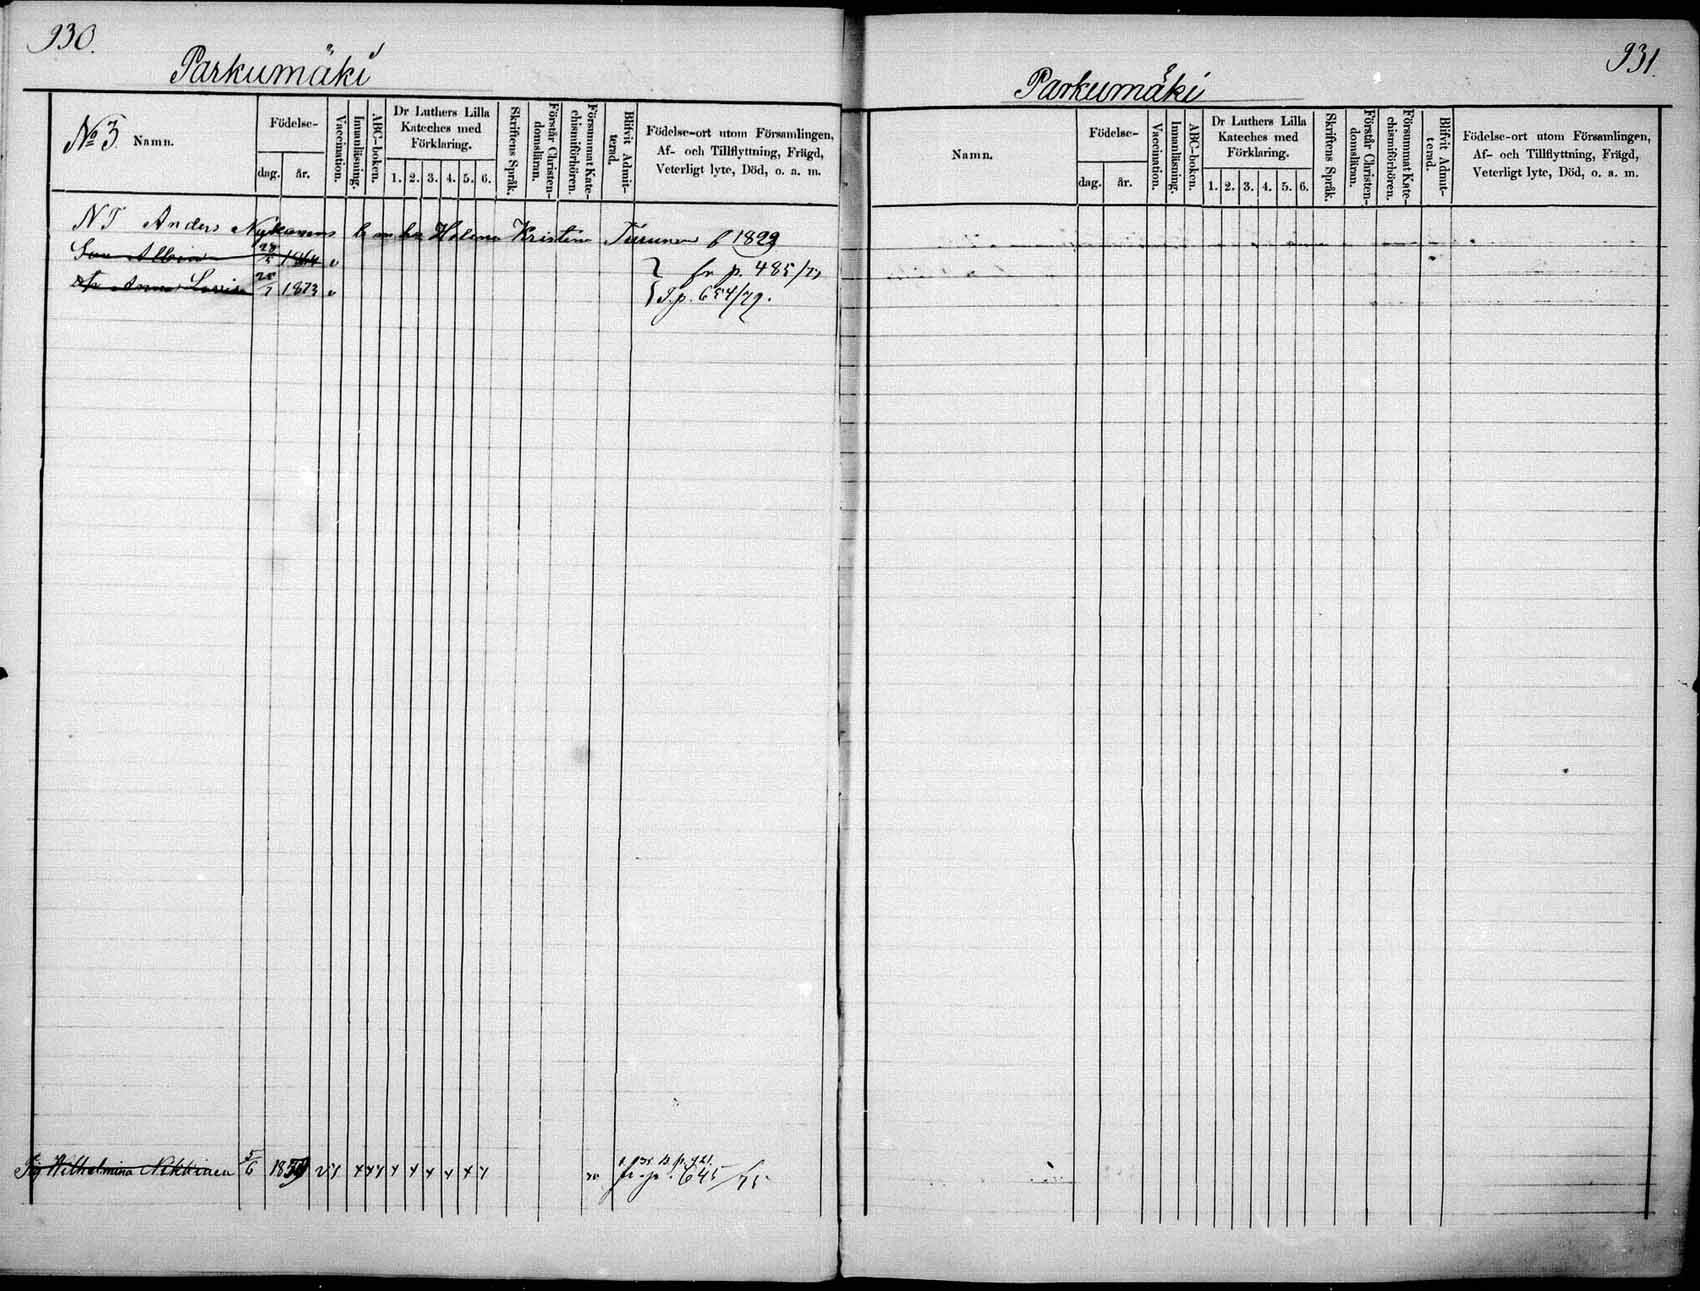 930.
Parkumäki
No 3 Namn.
Födelse-
dag.
år.
Vaccination.
Innanläsning.
ABC-boken.
Dr Luthers Lilla
Kateches med
Förklaring.
1. 2. 3. 4. 5. 6.
Skriftens Språk.
Förstår Christen-
domsläran.
Försummat Kate-
chismiförhören.
Blifvit Admit-
terad.
Födelse-ort utom Församlingen,
Af- och Tillflyttning, Frägd,
Veterligt lyte, Död, o. a. m.
Anders Nykänens Helena Kristina Turunen f 1829
Son Albin 1864 v
fr p. 485/77
Anna Lovisa 1873 v
T.p. 654/79.
Wilhelmina Nikkinen 5/6
fr. p. 645/75
931.
Parkumäki
Namn.
Födelse-
dag.
år.
Vaccination.
Innanläsning.
ABC-boken.
Dr Luthers Lilla
Kateches med
Förklaring.
1. 2. 3. 4. 5. 6.
Skriftens Språk.
Förstår Christen-
domsläran.
Försummat Kate-
chismiförhören.
Blifvit Admit-
terad.
Födelse-ort utom Församlingen,
Af- och Tillflyttning, Frägd,
Veterligt lyte, Död, o. a. m.